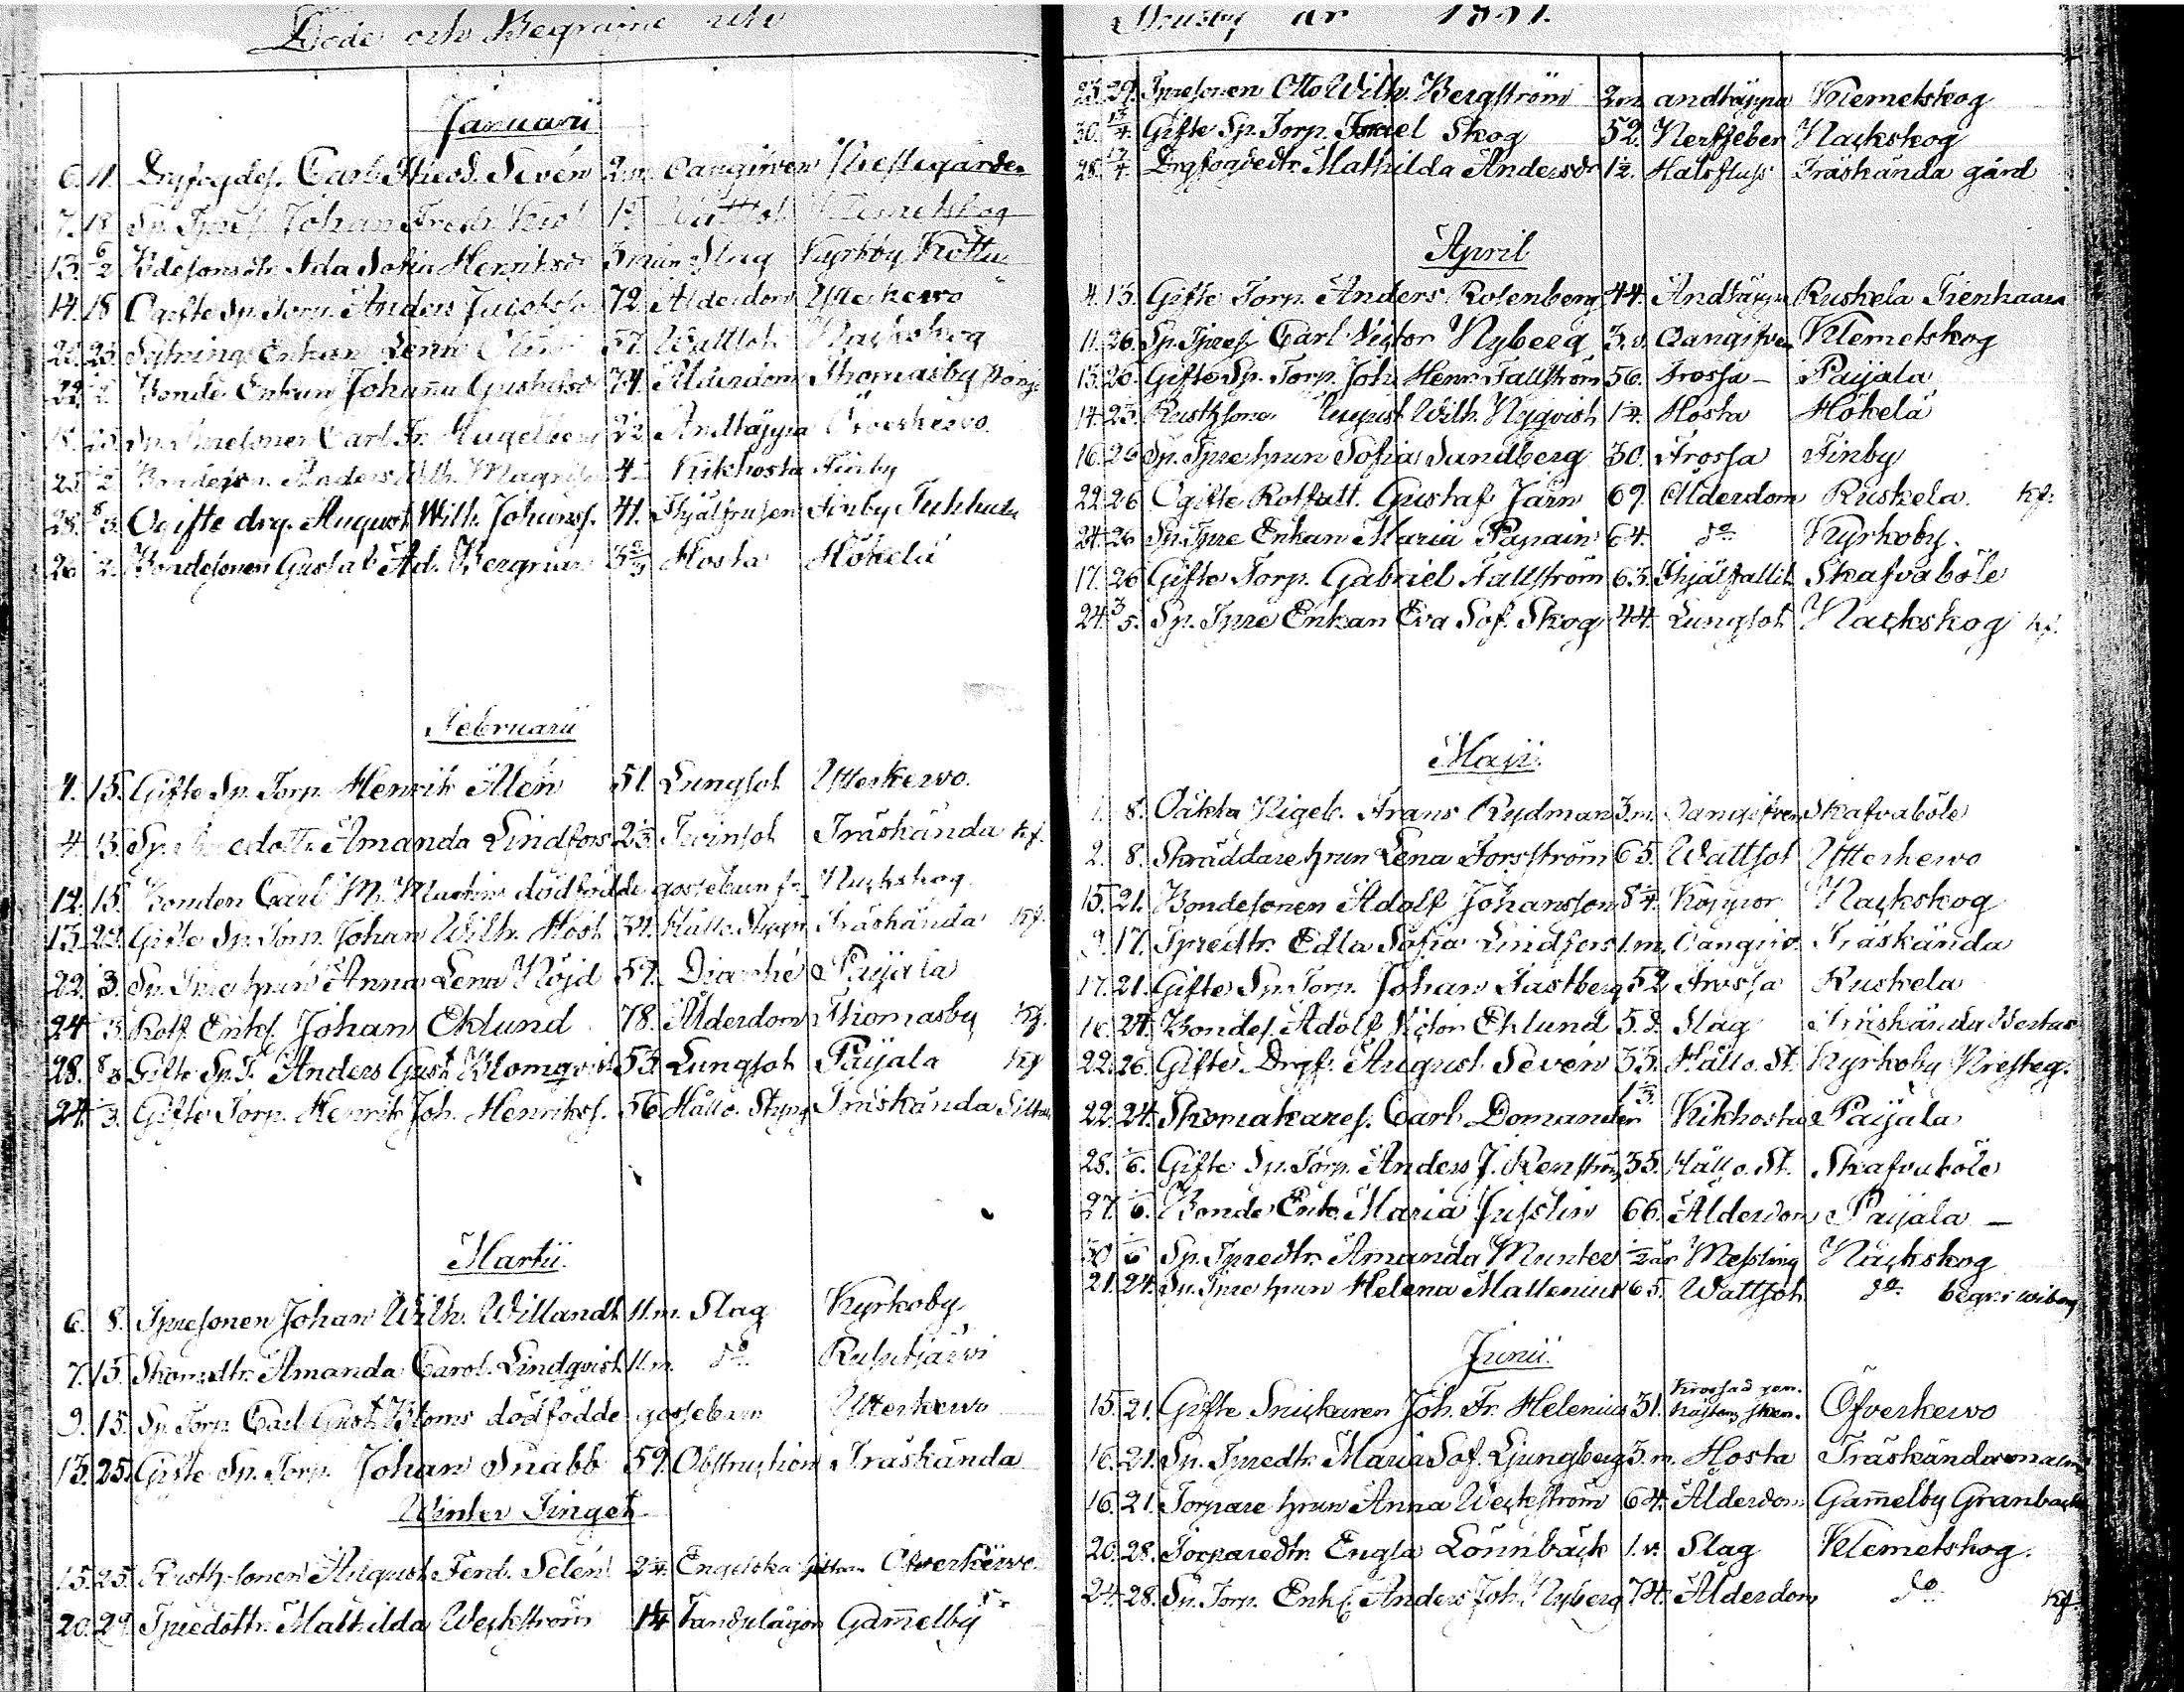 Döde och Begrafne uti
Januarii
6. 11. Drgfogdes. Carl Theod. Sevén 2 m. Oangifven Prestegården
7. 18. Sp. Tpres. Johan Fredr. 1 1/2 Wattsot Klemetskog
13. 6/2 Bdesonsdtr. Ida Sofia Henriksdr 3 mån Slag Kyrkby
14. 18 Ogifte Sp. Torp. Anders Jacobss. 72 Ålderdom Ytterkerwo
23. Sytnings Enkan Lena 57. Wattsot Nackskog
22. Bonde Enkan Johanna Gustafsdr 74. Ålderdom Thomasby
18. Sp. Tpresonen Carl Fr. Hagelberg 2 1/2 Andtäppa Öfverkerwo
25. 2. Bondeson. Anders Wilh. Magnuss. 4. Kikhosta Finby
28. 8/3. Ogifte drg. August Wilh. Johanss. 41. Ihjälfrusen Finby
26 2. Bondesonen Gustaf Ad. Bergman 3 2/3 Hosta Hökelä
Februarii
4. 15. Gifte Sp. Torp. Henrik Alén 51. Lungsot Ytterkerwo.
4. 13. Sp. Tpredottr. Amanda Lindfors 2 2/3 Twinsot Träskända Kf.
12. 15. Bonden Carl M. dödfödde gossebarn fr. Nackskog
13. 22. Gifte Sp. Torp. Johan Wilh. Höst 31. Håll o. Styng Träskända Kf.
22. 3. Sp. Tpre hrun Anna Lena Nöjd 57. Diarrhé Paijala
24 3. Rotf. Enkl. Johan Eklund 78. Ålderdom Thomasby Kf.
28. 8/3 Gifte Sp. T. Anders Gust. Blomqvist 53. Lungsot Paijala Kf
24. 3. Gifte Torp. Henrik Joh. Henrikss. 56 Håll o. Styng Träskända
Martii.
6. 8. Tpresonen Johan Wilh. Willandt 11. m. Slag Kyrkoby
7. 15. Skomdtr. Amanda Carol. Lindqvist 11. m. do. Rusutjärvi
9. 15. Sp. Torp. Carl Gust. Bloms dödfödde gossebarn Ytterkerwo
13. 25. Gifte Sp. Torp. Johan Snabb 59. Obstruction Träskända
Winter Tinget
15. 25. Rusth. sonen August Ferd. Selén 2 1/4. Engelska Öfverkerwo
20. 29. Tpredottr. Mathilda Weckström 1 1/4 Gamelby
år 1881.
25. 29. Tpresonen Otto Wilh. Bergström 2 m andtäppa Klemetskog
30. 13/4. Gifte Sp. Torp. Israel Skog 52. Nervfeber Nackskog
28. 12/4. Drgfogdedtr. Mathilda Andersdr 1 1/2. Halsfluss Träskända gård
April
4. 13. Gifte Torp. Anders Rosenberg 44. Andtäppa Ruskela Tienhaara
11. 26. Sp. Tpres. Carl Victor Nyberg 3. v. Oangifven Klemetskog
13. 26. Gifte Sp. Torp. Joh. Henr. Fallström 56. Frossa - Paijala
14. 23. Rusthsonen August Wilh. Nyqvist 1 1/4. Hosta Hökelä
16. 26 Sp. Tpre hrun Sofia Sandberg 30. Frossa Finby
22. 26 Ogifte Rotfatt. Gustaf Järn 69. Ålderdom Ruskela. Kf.
24. 26 Sp. Tpre Enkan Maria Papain 64. do Kyrkoby.
17. 26 Gifte Torp. Gabriel Fallström 63. Ihjälfallit Skafvaböle
24. 3/5. Sp. Tpre Enkan Eva Sof. Skog 44 Lungsot Nackskog Kf.
Maji.
1. 8. Oäkta Pigeb. Frans Rydman 3. m. Oangifven Skafvaböle
2. 8. Skräddare hrun Lena Forsström 65. Wattsot Ytterkerwo
15. 21. Bondesonen Adolf Johansson 8 1/4. Koppor Nackskog
9. 17. Tpredtr. Edla Sofia Lindfors 1. m. Oangifv. Träskända
17. 21. Gifte Sp. Torp. Johan Fastberg 52. Frossa Ruskela
16. 24. Bondes. Adolf Victor Eklund 5. d. Slag Träskända
22. 26. Gifte Drgf. August Sevén 33. Håll o. St. Kyrkoby Presteg.
22. 24. Skomakares. Carl Domander 1 2/3 Kikhosta Paijala
28. 6. Gifte Sp. Torp. Anders J. Renström 35. Håll o. St. Skafvaböle
27. 6. Bonde Enk. Maria Jusslin 66. Ålderdom Paijala —
30 6 Sp. Tpredtr. Amanda Munter 1/2 år Messling Nackskog
21. 24. Sp. Tpre hrun Helena Mallenius 65. Wattsot do. begr. i Wiborg
Junii.
15. 21. Gifte Snickaren Joh. Fr. Helenius 31. Krossad gen. hästens sken. Öfverkerwo
16. 21. Sp. Tpredtr. Maria Sof. Ljungberg 3. m. Hosta Träskända malm
16. 21. Torpare hrun Anna Weckström 64. Ålderdom Gamelby Granbacka
20. 28. Torparedtr. Engla Lönnbäck 1. v. Slag Klemetskog.
24. 28. Sp. Torp. Enkl. Anders Joh. Nyberg 74. Ålderdom do Kf.